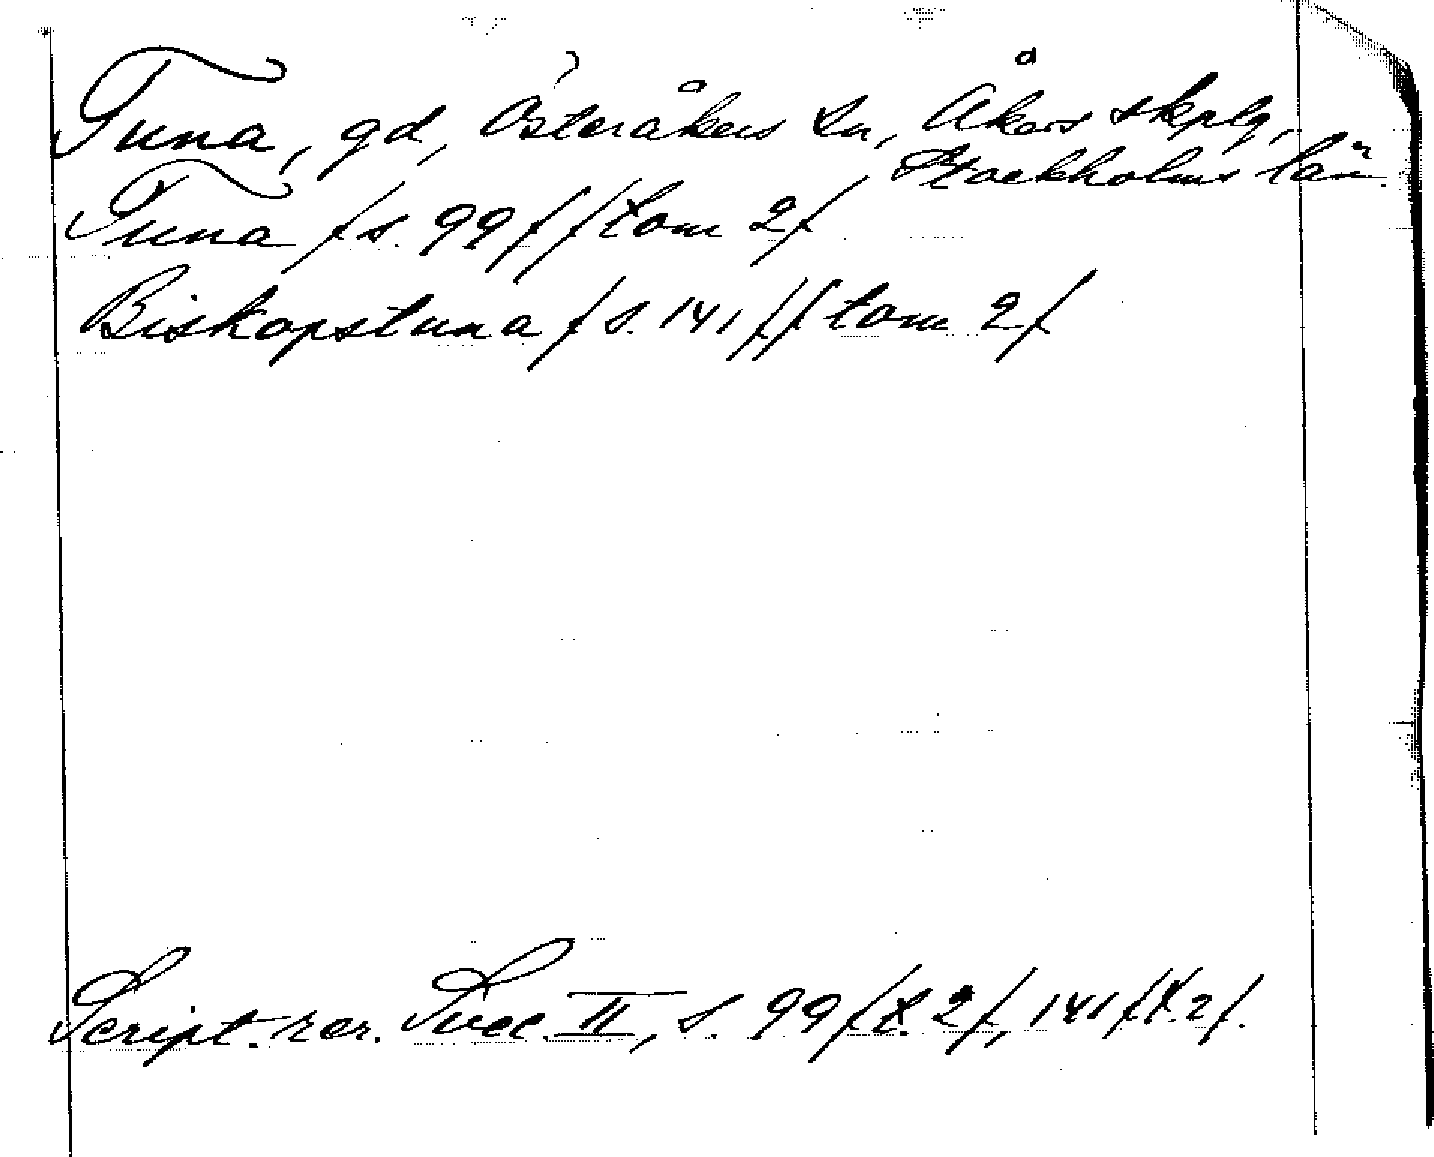 Tuna, gd, Österåkers sn, Åkers skplg,
Stockholms län.
Tuna /s. 99/ /tom 2/
Biskopstuna /s. 141/ /tom 2/
Script. rer. Svec. II, s. 99 /t. 2/, 141 /t. 2/.